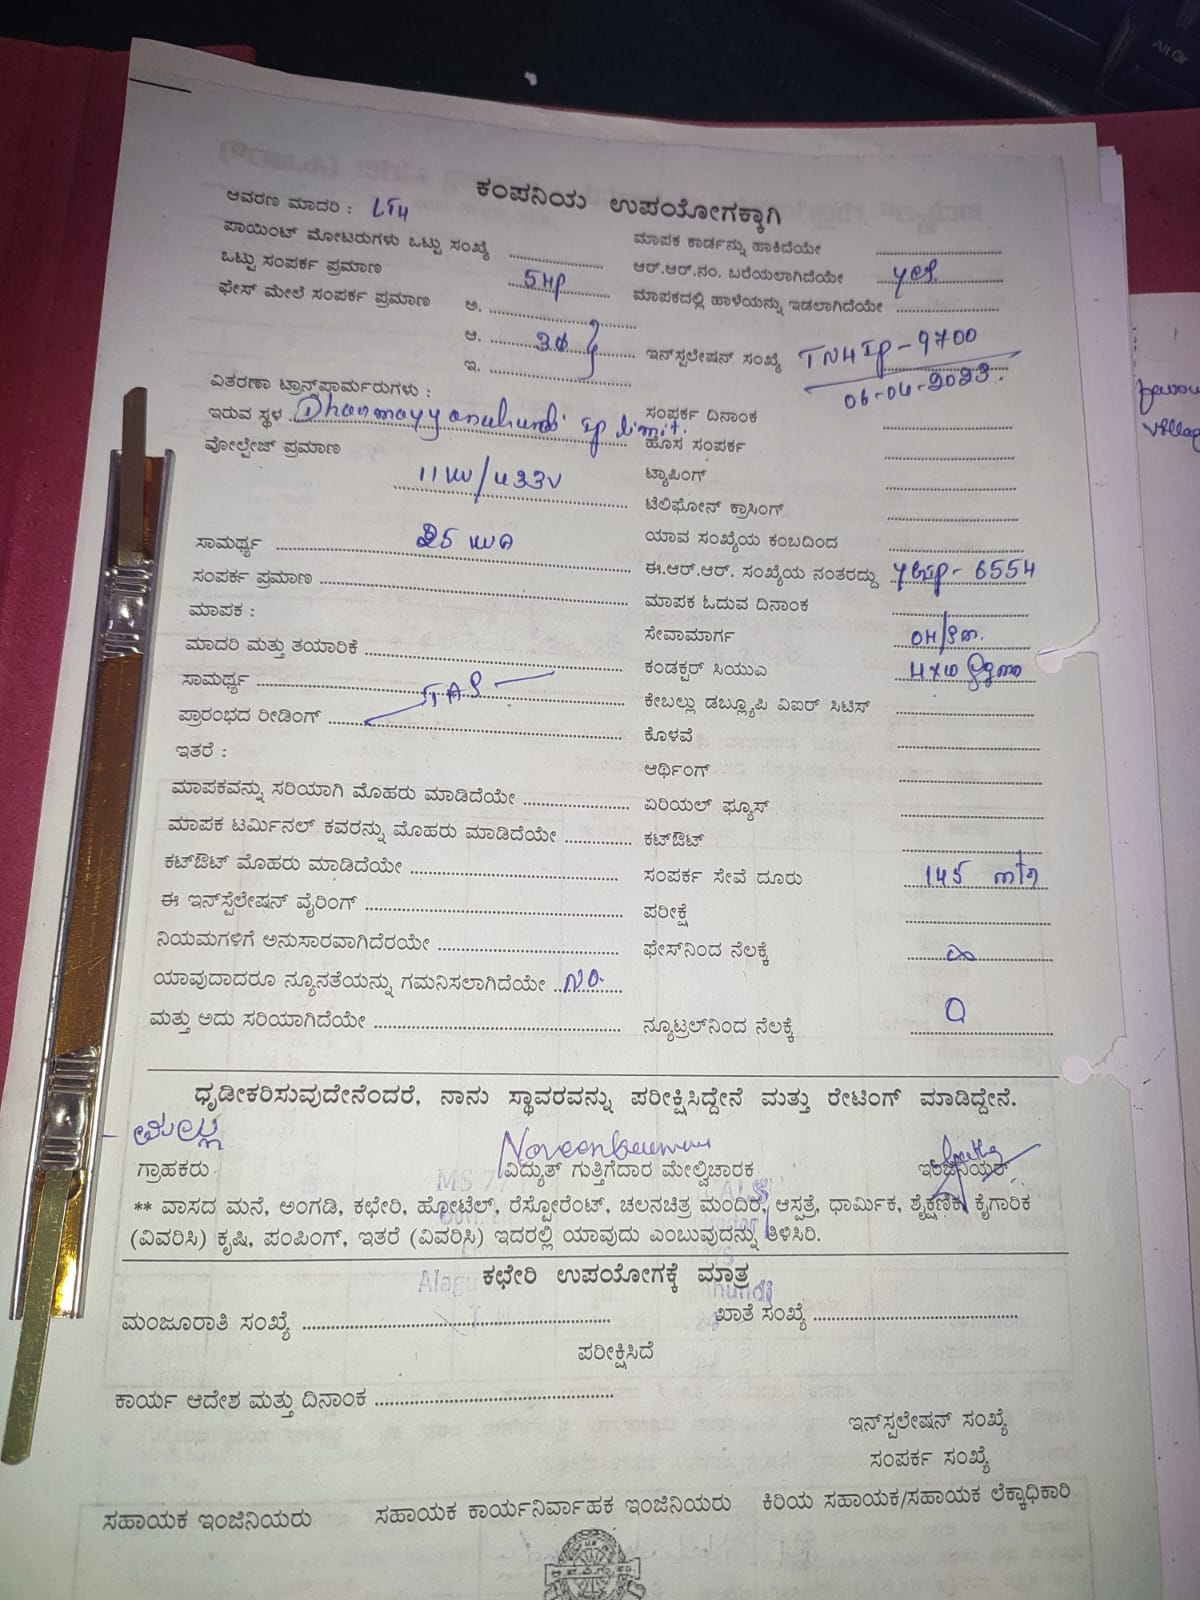 ಕಂಪನಿಯ ಉಪಯೋಗಕ್ಕಾಗಿ
ಆವರಣ ಮಾದರಿ : LT4
ಪಾಯಿಂಟ್ ಮೋಟರುಗಳು ಒಟ್ಟು ಸಂಖ್ಯೆ
ಮಾಪಕ ಕಾರ್ಡನ್ನು ಹಾಕಿದೆಯೇ
ಒಟ್ಟು ಸಂಪರ್ಕ ಪ್ರಮಾಣ 5HP
ಆರ್.ಆರ್.ನಂ. ಬರೆಯಲಾಗಿದೆಯೇ yes
ಫೇಸ್ ಮೇಲೆ ಸಂಪರ್ಕ ಪ್ರಮಾಣ ಅ.
ಮಾಪಕದಲ್ಲಿ ಹಾಳೆಯನ್ನು ಇಡಲಾಗಿದೆಯೇ
ಆ. 3Φ
ಇನ್‌ಸ್ಪಲೇಷನ್ ಸಂಖ್ಯೆ TNHIP-9700
ಇ.
06-04-2023.
ವಿತರಣಾ ಟ್ರಾನ್ಸ್‌ಫಾರ್ಮರುಗಳು :
ಇರುವ ಸ್ಥಳ IP limit.
ಸಂಪರ್ಕ ದಿನಾಂಕ
ವೋಲ್ಟೇಜ್ ಪ್ರಮಾಣ
ಹೊಸ ಸಂಪರ್ಕ
11KV/433V
ಟ್ಯಾಪಿಂಗ್
ಟೆಲಿಫೋನ್ ಕ್ರಾಸಿಂಗ್
ಸಾಮರ್ಥ್ಯ 25 KVA
ಯಾವ ಸಂಖ್ಯೆಯ ಕಂಬದಿಂದ
ಸಂಪರ್ಕ ಪ್ರಮಾಣ
ಈ.ಆರ್.ಆರ್. ಸಂಖ್ಯೆಯ ನಂತರದ್ದು 6554
ಮಾಪಕ :
ಮಾಪಕ ಓದುವ ದಿನಾಂಕ
ಮಾದರಿ ಮತ್ತು ತಯಾರಿಕೆ
ಸೇವಾಮಾರ್ಗ
ಸಾಮರ್ಥ್ಯ
ಕಂಡಕ್ಟರ್ ಸಿಯುಎ
ಪ್ರಾರಂಭದ ರೀಡಿಂಗ್
ಕೇಬಲ್ಲು ಡಬ್ಲ್ಯೂಪಿ ವಿಐರ್ ಸಿಟಿಸ್
ಇತರೆ :
ಕೊಳವೆ
ಆರ್ಥಿಂಗ್
ಮಾಪಕವನ್ನು ಸರಿಯಾಗಿ ಮೊಹರು ಮಾಡಿದೆಯೇ
ಏರಿಯಲ್ ಫ್ಯೂಸ್
ಮಾಪಕ ಟರ್ಮಿನಲ್ ಕವರನ್ನು ಮೊಹರು ಮಾಡಿದೆಯೇ
ಕಟ್‌ಔಟ್
ಕಟ್‌ಔಟ್ ಮೊಹರು ಮಾಡಿದೆಯೇ
ಸಂಪರ್ಕ ಸೇವೆ ದೂರು 145
ಈ ಇನ್‌ಸ್ಪಲೇಷನ್ ವೈರಿಂಗ್
ಪರೀಕ್ಷೆ
ನಿಯಮಗಳಿಗೆ ಅನುಸಾರವಾಗಿದೆರಯೇ
ಫೇಸ್‌ನಿಂದ ನೆಲಕ್ಕೆ ∞
ಯಾವುದಾದರೂ ನ್ಯೂನತೆಯನ್ನು ಗಮನಿಸಲಾಗಿದೆಯೇ NO.
ಮತ್ತು ಅದು ಸರಿಯಾಗಿದೆಯೇ
ನ್ಯೂಟ್ರಲ್‌ನಿಂದ ನೆಲಕ್ಕೆ 0
ಧೃಡೀಕರಿಸುವುದೇನೆಂದರೆ, ನಾನು ಸ್ಥಾವರವನ್ನು ಪರೀಕ್ಷಿಸಿದ್ದೇನೆ ಮತ್ತು ರೇಟಿಂಗ್ ಮಾಡಿದ್ದೇನೆ.
ಗ್ರಾಹಕರು ವಿದ್ಯುತ್ ಗುತ್ತಿಗೆದಾರ ಮೇಲ್ವಿಚಾರಕ ಇಂಜಿನಿಯರ್
** ವಾಸದ ಮನೆ, ಅಂಗಡಿ, ಕಛೇರಿ, ಹೋಟೆಲ್, ರೆಸ್ಟೋರೆಂಟ್, ಚಲನಚಿತ್ರ ಮಂದಿರ, ಆಸ್ಪತ್ರೆ, ಧಾರ್ಮಿಕ, ಶೈಕ್ಷಣಿಕ, ಕೈಗಾರಿಕ
(ವಿವರಿಸಿ) ಕೃಷಿ, ಪಂಪಿಂಗ್, ಇತರೆ (ವಿವರಿಸಿ) ಇದರಲ್ಲಿ ಯಾವುದು ಎಂಬುವುದನ್ನು ತಿಳಿಸಿರಿ.
ಕಛೇರಿ ಉಪಯೋಗಕ್ಕೆ ಮಾತ್ರ
ಮಂಜೂರಾತಿ ಸಂಖ್ಯೆ ಖಾತೆ ಸಂಖ್ಯೆ
ಪರೀಕ್ಷಿಸಿದೆ
ಕಾರ್ಯ ಆದೇಶ ಮತ್ತು ದಿನಾಂಕ
ಇನ್‌ಸ್ಪಲೇಷನ್ ಸಂಖ್ಯೆ
ಸಂಪರ್ಕ ಸಂಖ್ಯೆ
ಸಹಾಯಕ ಇಂಜಿನಿಯರು ಸಹಾಯಕ ಕಾರ್ಯನಿರ್ವಾಹಕ ಇಂಜಿನಿಯರು ಕಿರಿಯ ಸಹಾಯಕ/ಸಹಾಯಕ ಲೆಕ್ಕಾಧಿಕಾರಿ
Alt Gr